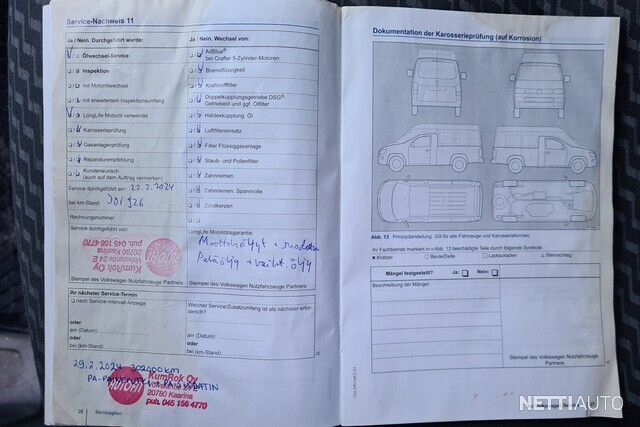 Service-Nachweis 11
Ja / Nein. Durchgeführt wurde:
Ölwechsel-Service
Inspektion
mit Motorölwechsel
mit erweitertem Inspektionsumfang
LongLife Motoröl verwendet
Karosserieprüfung
Gasanlagenprüfung
Reparaturempfehlung
Kundenwunsch
(auch auf dem Auftrag vermerken)
Service durchgeführt am: 22.2.2024
bei km-Stand: 301 926
Rechnungsnummer:
Service durchgeführt von:
KumRok Oy
20780 Kaarina
puh. 045 156 4770
Stempel des Volkswagen Nutzfahrzeuge Partners
Ja / Nein. Wechsel von:
AdBlue®
bei Crafter 5-Zylinder-Motoren
Bremsflüssigkeit
Kraftstofffilter
Doppelkupplungsgetriebe DSG®
Getriebeöl und ggf. Ölfilter
Haldexkupplung: Öl
Luftfiltereinsatz
Filter Flüssiggasanlage
Staub- und Pollenfilter
Zahnriemen
Zahnriemen: Spannrolle
Zündkerzen
LongLife Mobilitätsgarantie:
Moottoriöljyt + suodatin
Perä öljy + vaiht. öljy
Stempel des Volkswagen Nutzfahrzeuge Partners
Ihr nächster Service-Termin
nach Service-Intervall-Anzeige
oder
am (Datum)
oder
bei (km-Stand)
Welcher Service/Zusatzumfang ist als nächster erfor-
derlich?
am (Datum)
oder
bei (km-Stand)
29.2.2024 302000km
KumRok Oy
20780 Kaarina
puh. 045 156 4770
28 Serviceplan
Dokumentation der Karosserieprüfung (auf Korrosion)
Abb. 13 Prinzipdarstellung. Gilt für alle Fahrzeuge und Karosserieformen.
Ihr Fachbetrieb markiert in » Abb. 13 beschädigte Teile durch folgende Symbole:
× Kratzer ○ Beule/Delle □ Lackschaden △ Steinschlag
Mängel festgestellt? Ja: Nein:
Beschreibung der Mängel:
Stempel des Volkswagen Nutzfahrzeuge
Partners
NETTIAUTO